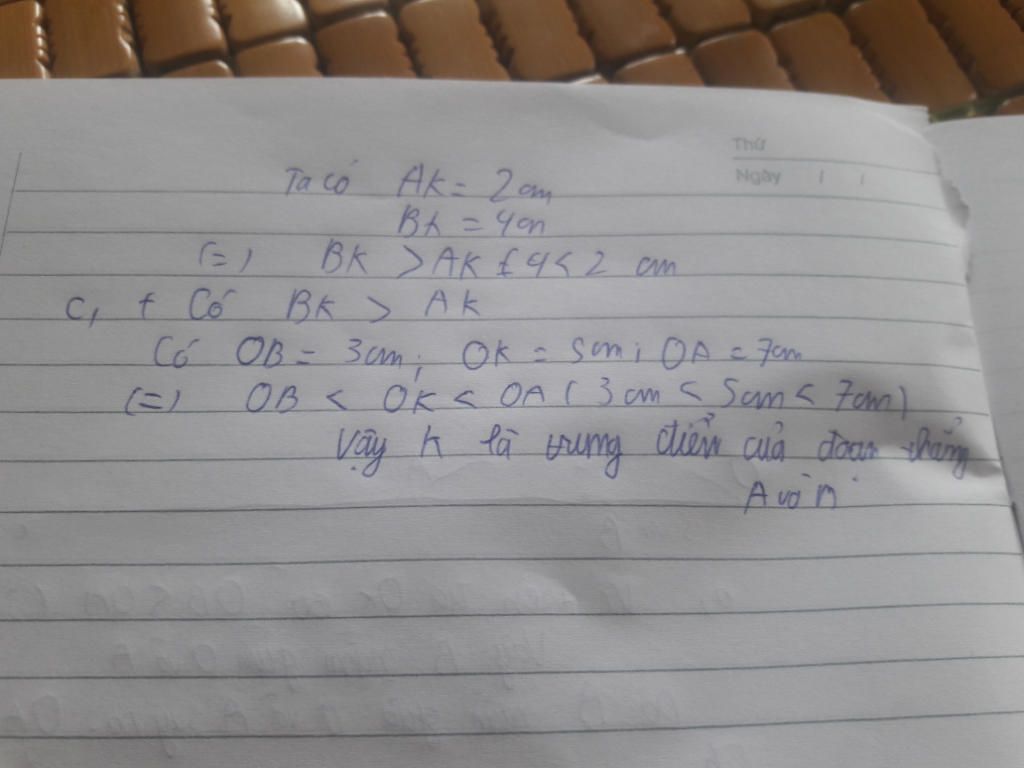 Thứ
Ngày / /
Ta có AK = 2cm
BK = 4cm
(=) BK > AK (4<2 cm
C, + Có BK > AK
Có OB = 3cm; OK = 5cm; OA = 7cm
(=) OB < OK < OA (3cm < 5cm < 7cm)
Vậy K là trung điểm của đoạn thẳng
A và